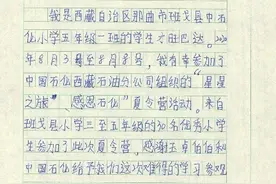 我是西藏自治区那曲市班戈县中石
化小学五年级一班的学生才旺巴达。2020
年8月3日至8月8号，我有幸参加了
中国石化西藏石油分公司组织的“星星
之旅”、感恩石化”夏令营活动。来自
班戈县小学三至五年级的30名优秀小学
生参加了此次夏令营，感谢玉卓伯伯和
中国石化给予我们这次难得的学习参观